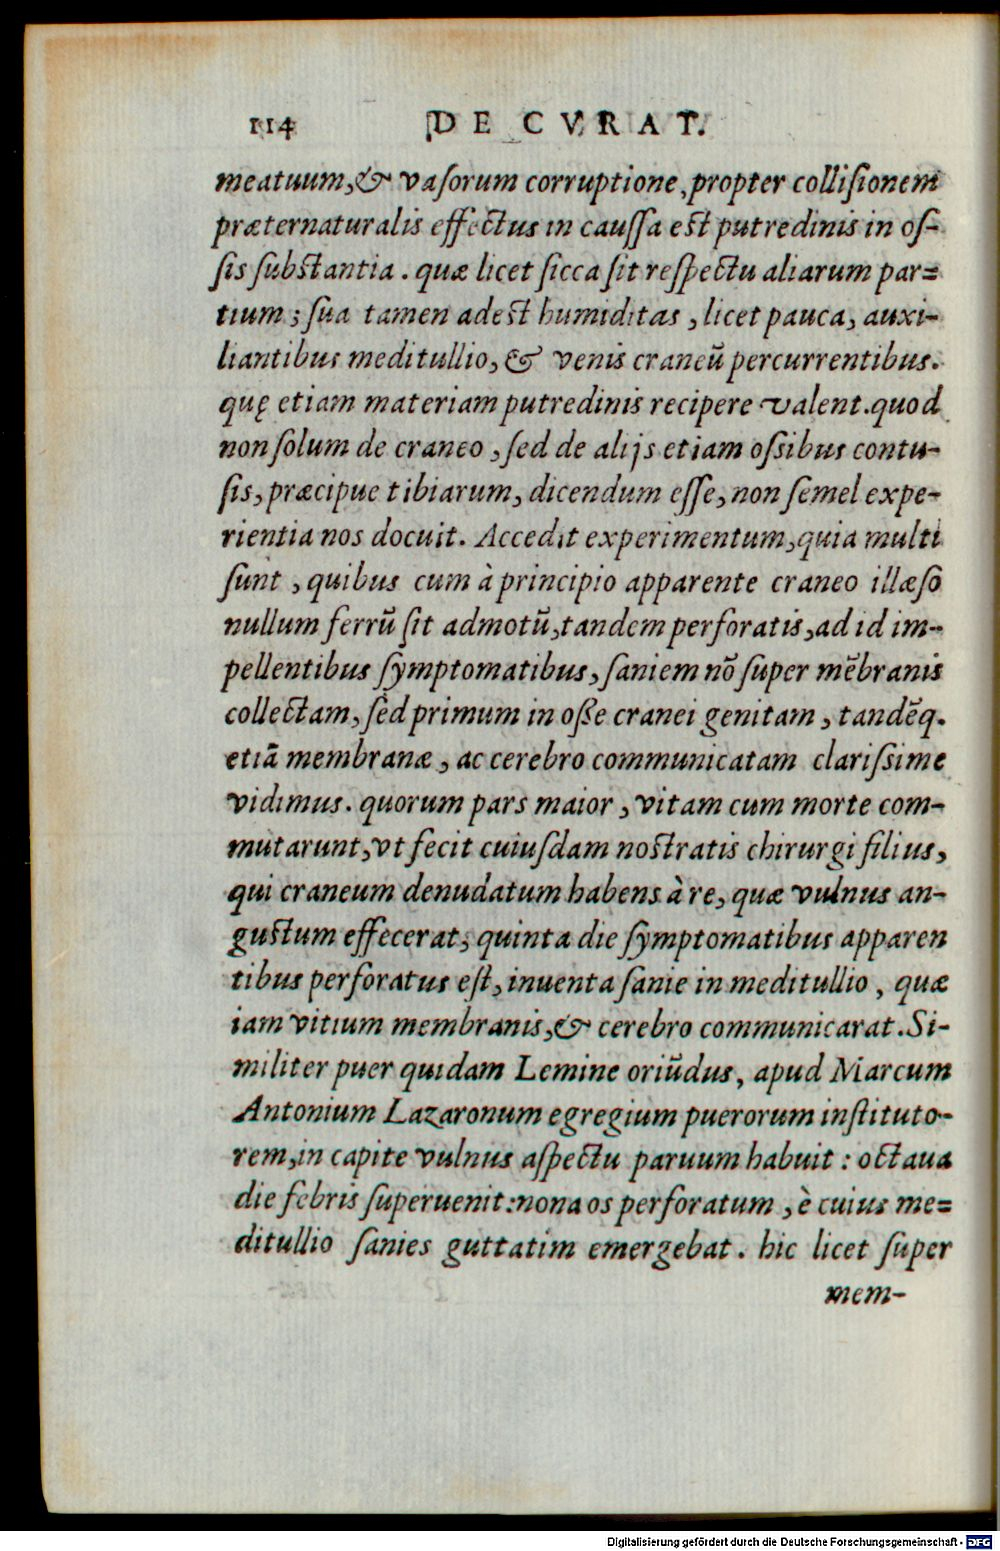 114 DE CVRAT.
meatuum, & vaſorum corruptione, propter colliſionem
præternaturalis effectus in cauſſa eſt putredinis in oſ-
ſis ſubſtantia. quæ licet ſicca ſit reſpectu aliarum par=
tium; ſua tamen adeſt humiditas, licet pauca, auxi-
liantibus meditullio, & venis craneū percurrentibus.
quę etiam materiam putredinis recipere valent. quod
non ſolum de craneo, ſed de alijs etiam oſsibus contu-
ſis, præcipue tibiarum, dicendum eſſe, non ſemel expe-
rientia nos docuit. Accedit experimentum, quia multi
ſunt, quibus cum à principio apparente craneo illæſo
nullum ferrū ſit admotū, tandem perforatis, ad id im-
pellentibus ſymptomatibus, ſaniem nō ſuper mēbranis
collectam, ſed primum in oſſe cranei genitam, tandēq.
etiā membranæ, ac cerebro communicatam clariſsime
vidimus. quorum pars maior, vitam cum morte com-
mutarunt, vt fecit cuiuſdam noſtratis chirurgi filius,
qui craneum denudatum habens à re, quæ vulnus an-
guſtum effecerat, quinta die ſymptomatibus apparen
tibus perforatus eſt, inuenta ſanie in meditullio, quæ
iam vitium membranis, & cerebro communicarat. Si-
militer puer quidam Lemine oriūdus, apud Marcum
Antonium Lazaronum egregium puerorum inſtituto-
rem, in capite vulnus aſpectu paruum habuit: octaua
die febris ſuperuenit: nona os perforatum, è cuius me=
ditullio ſanies guttatim emergebat. hic licet ſuper
mem-
Digitalisierung gefördert durch die Deutsche Forschungsgemeinschaft - DFG